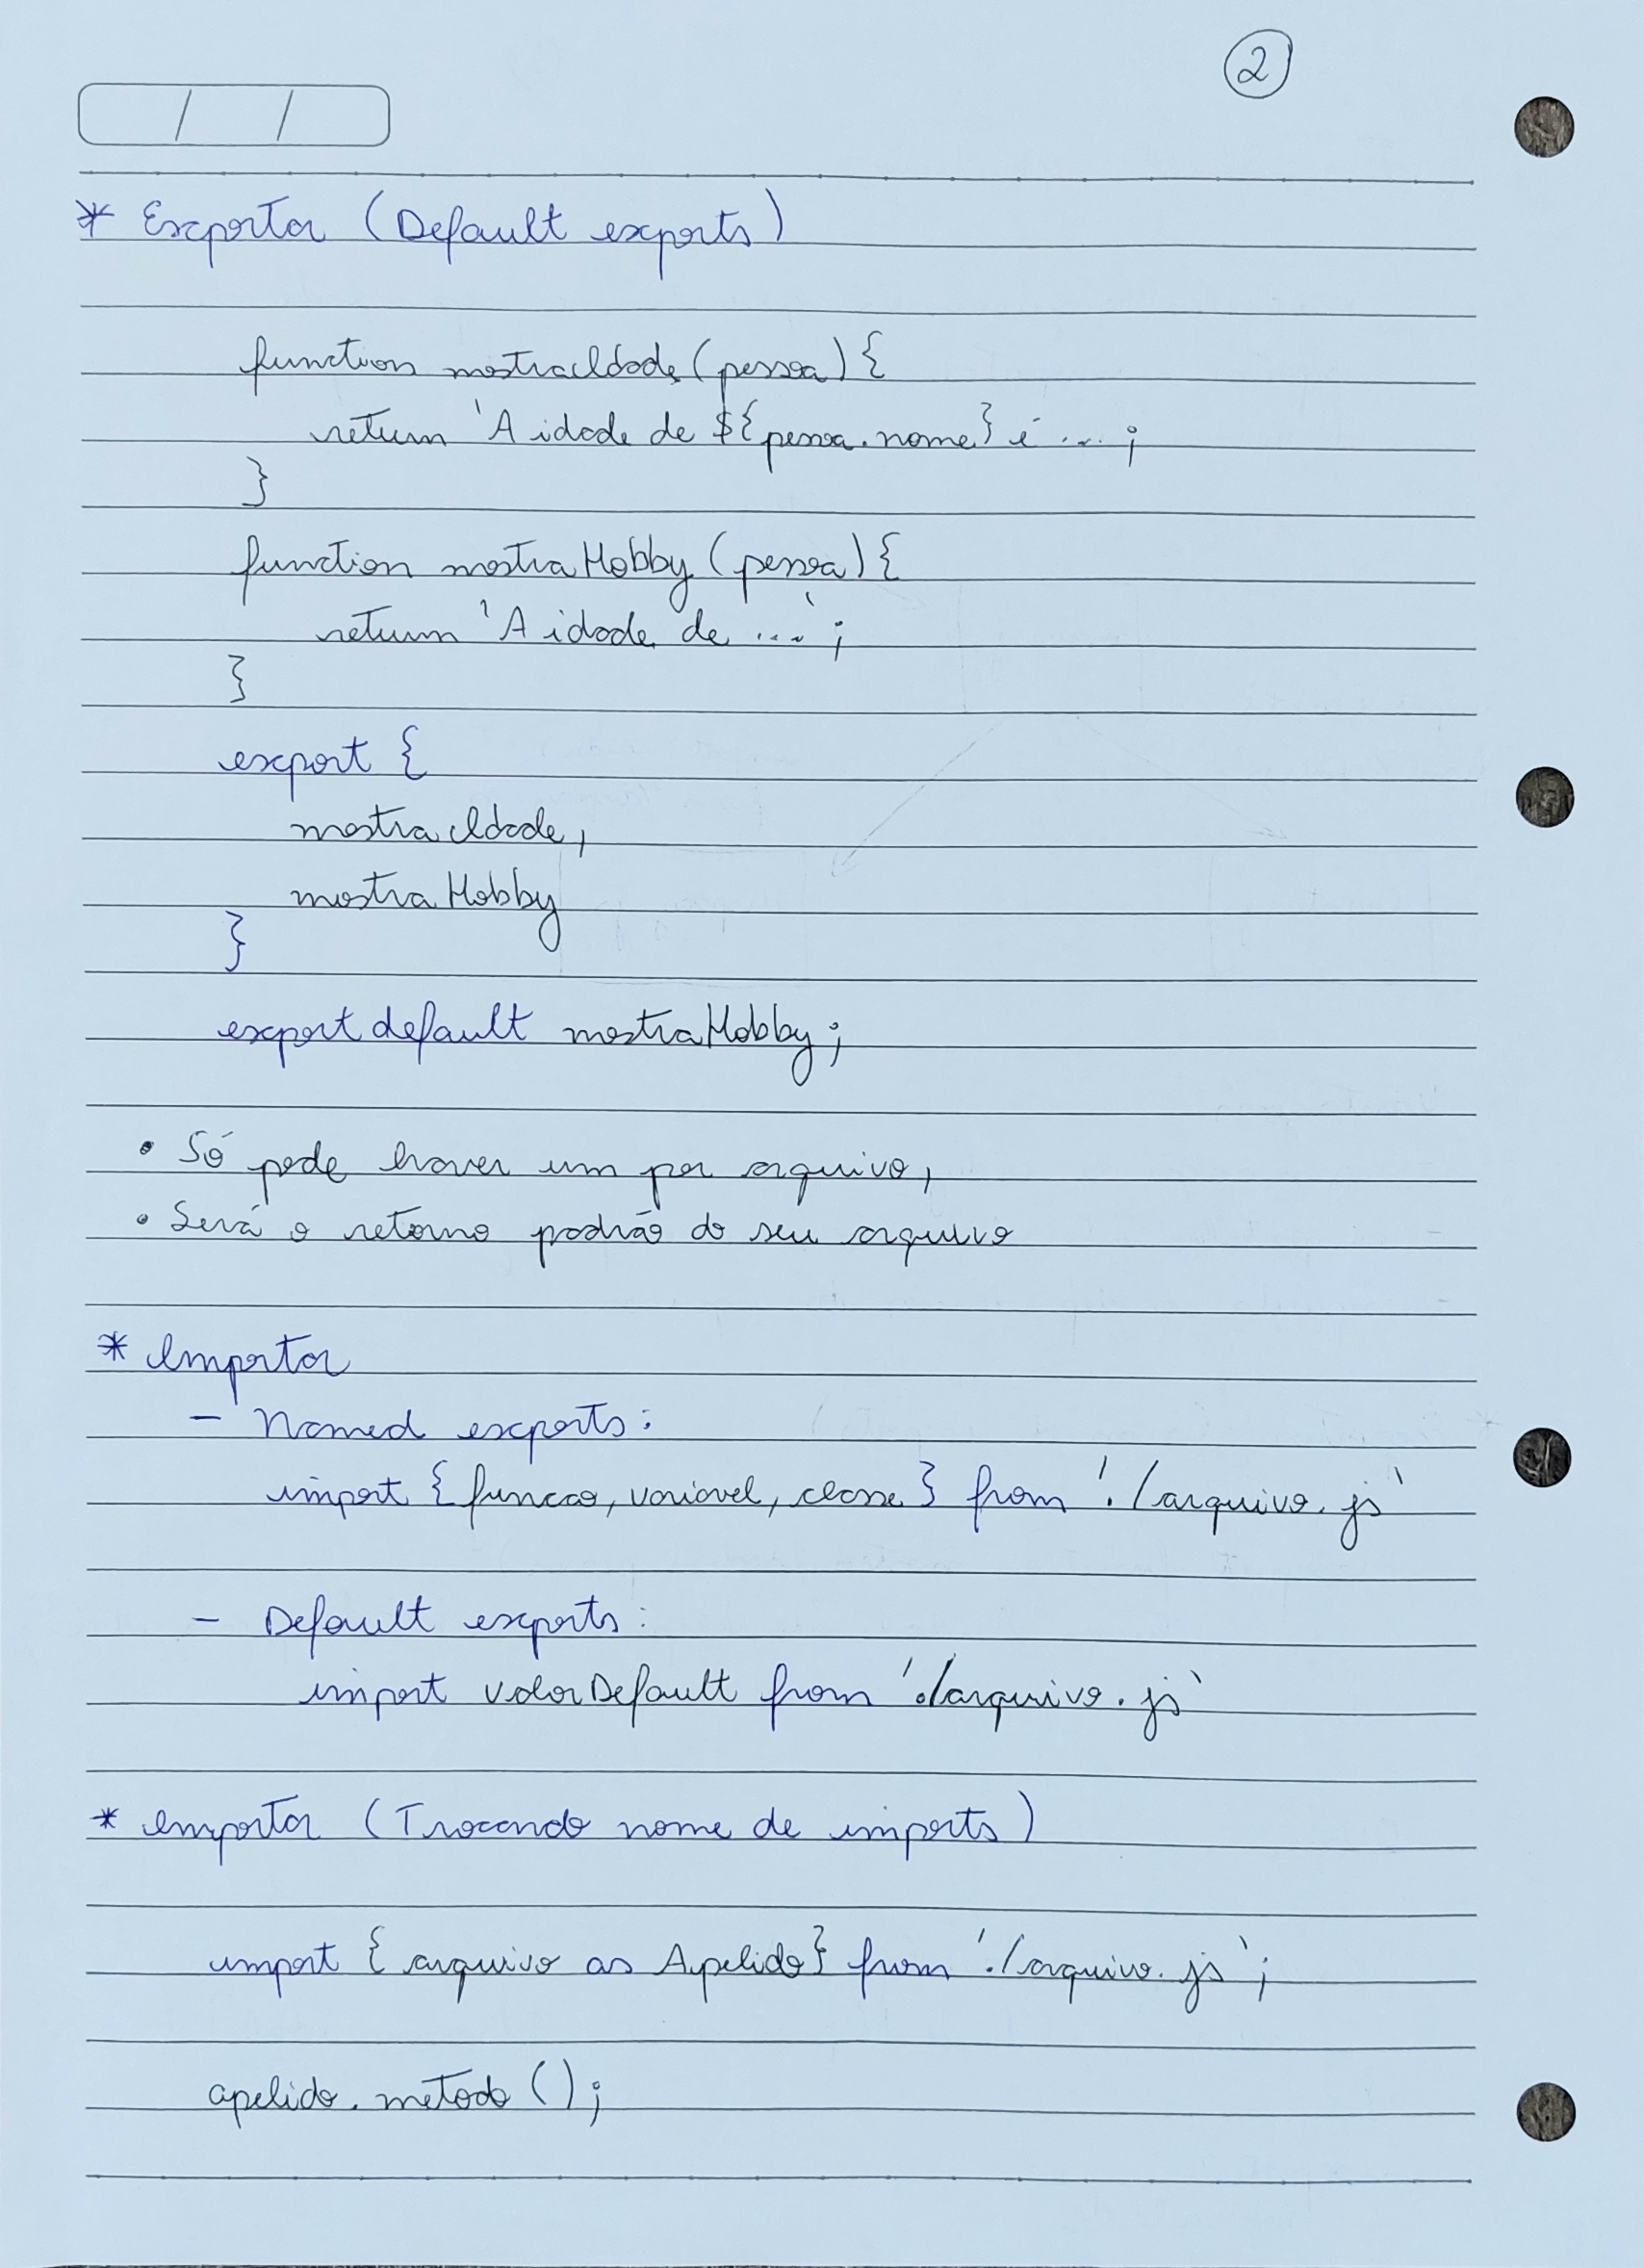 2
/ /
* Exportar (Default exports)
function mostraIdade (pessoa) {
return 'A idade de ${pessoa.nome} é ... ;
}
function mostraHobby (pessoa) {
return 'A idade de ...' ;
}
export {
mostraIdade,
mostraHobby
}
export default mostraHobby;
• Só pode haver um por arquivo,
• Será o retorno padrão do seu arquivo
* Importar
- Named exports:
import { funcao, variavel, classe } from './arquivo.js'
- Default exports:
import valorDefault from './arquivo.js'
* Importar (Trocando nome de imports)
import { arquivo as Apelido } from './arquivo.js';
apelido.metodo();